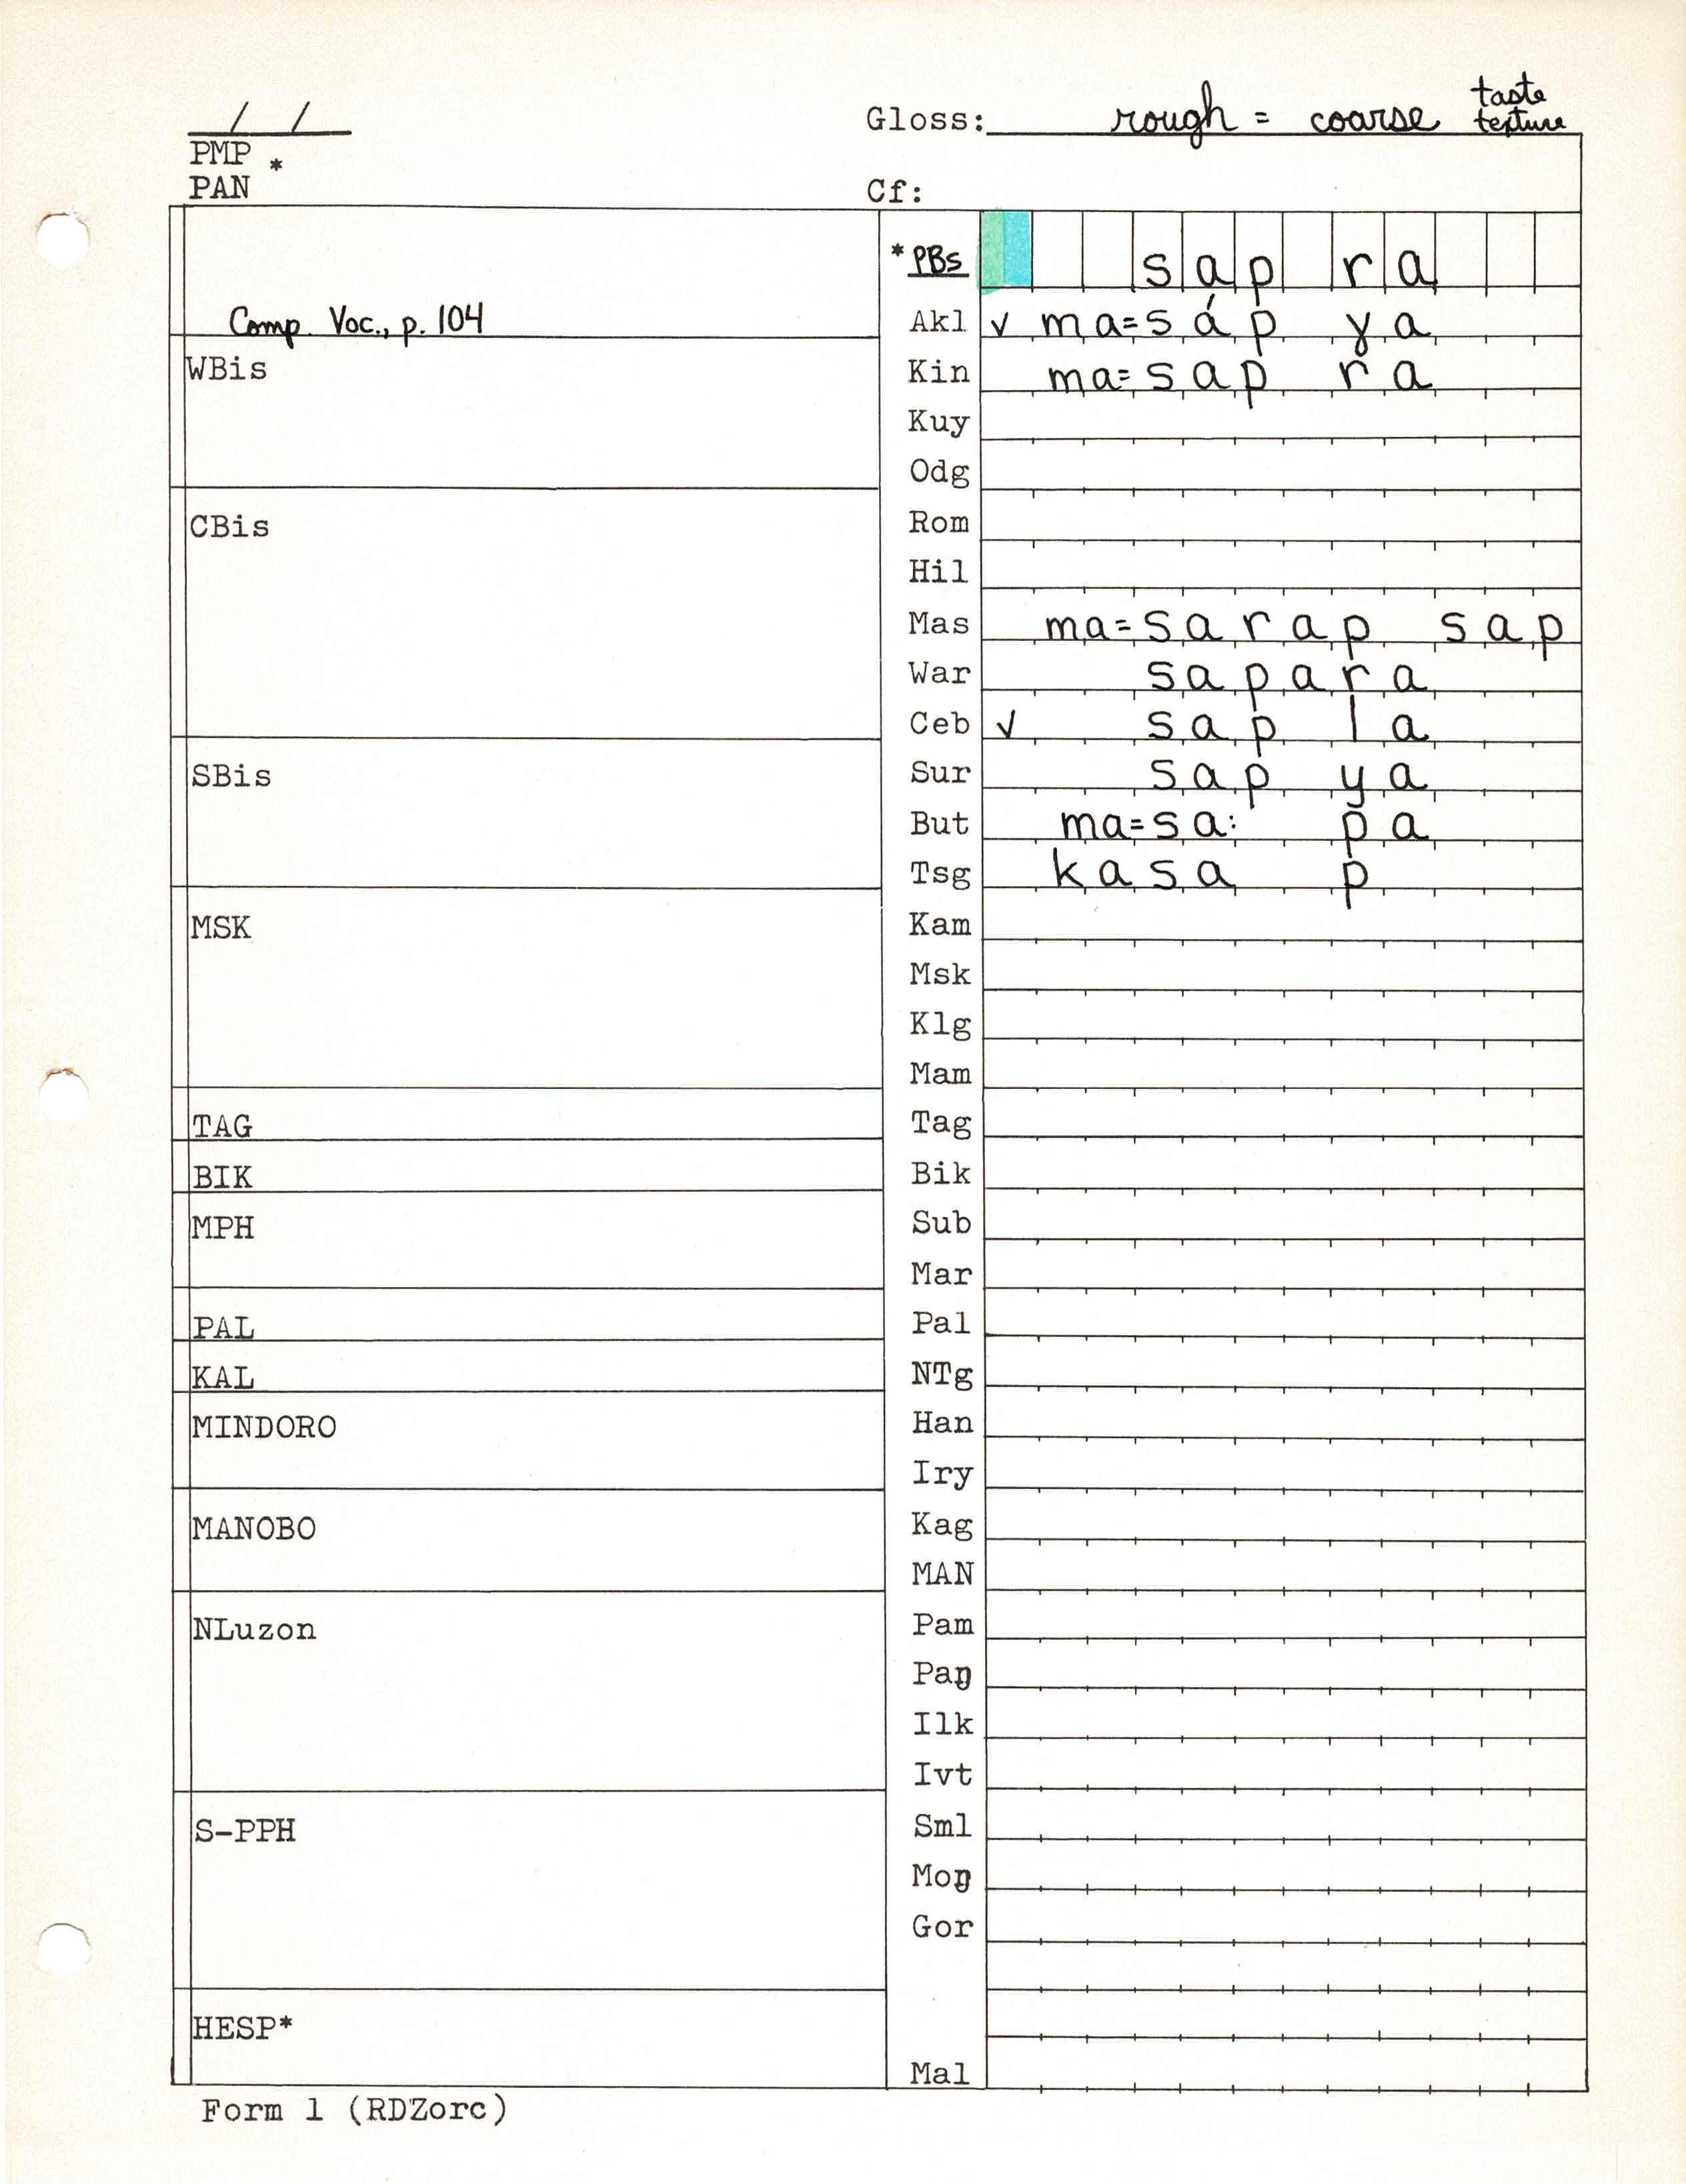 / /
Gloss: rough = coarse taste texture
PMP *
PAN
Cf:
*PBs sap ra
Comp. Voc., p. 104
Akl √ ma=sáp ɣa
WBis
Kin ma=sap ra
Kuy
Odg
CBis
Rom
Hil
Mas ma=sarap sap
War sapara
Ceb √ sap la
SBis
Sur sap ya
But ma=sa: pa
Tsg kasa p
MSK
Kam
Msk
Klg
Mam
TAG
Tag
BIK
Bik
MPH
Sub
Mar
PAL
Pal
KAL
NTg
MINDORO
Han
Iry
MANOBO
Kag
MAN
NLuzon
Pam
Paŋ
Ilk
Ivt
S-PPH
Sml
Moŋ
Gor
HESP*
Mal
Form 1 (RDZorc)